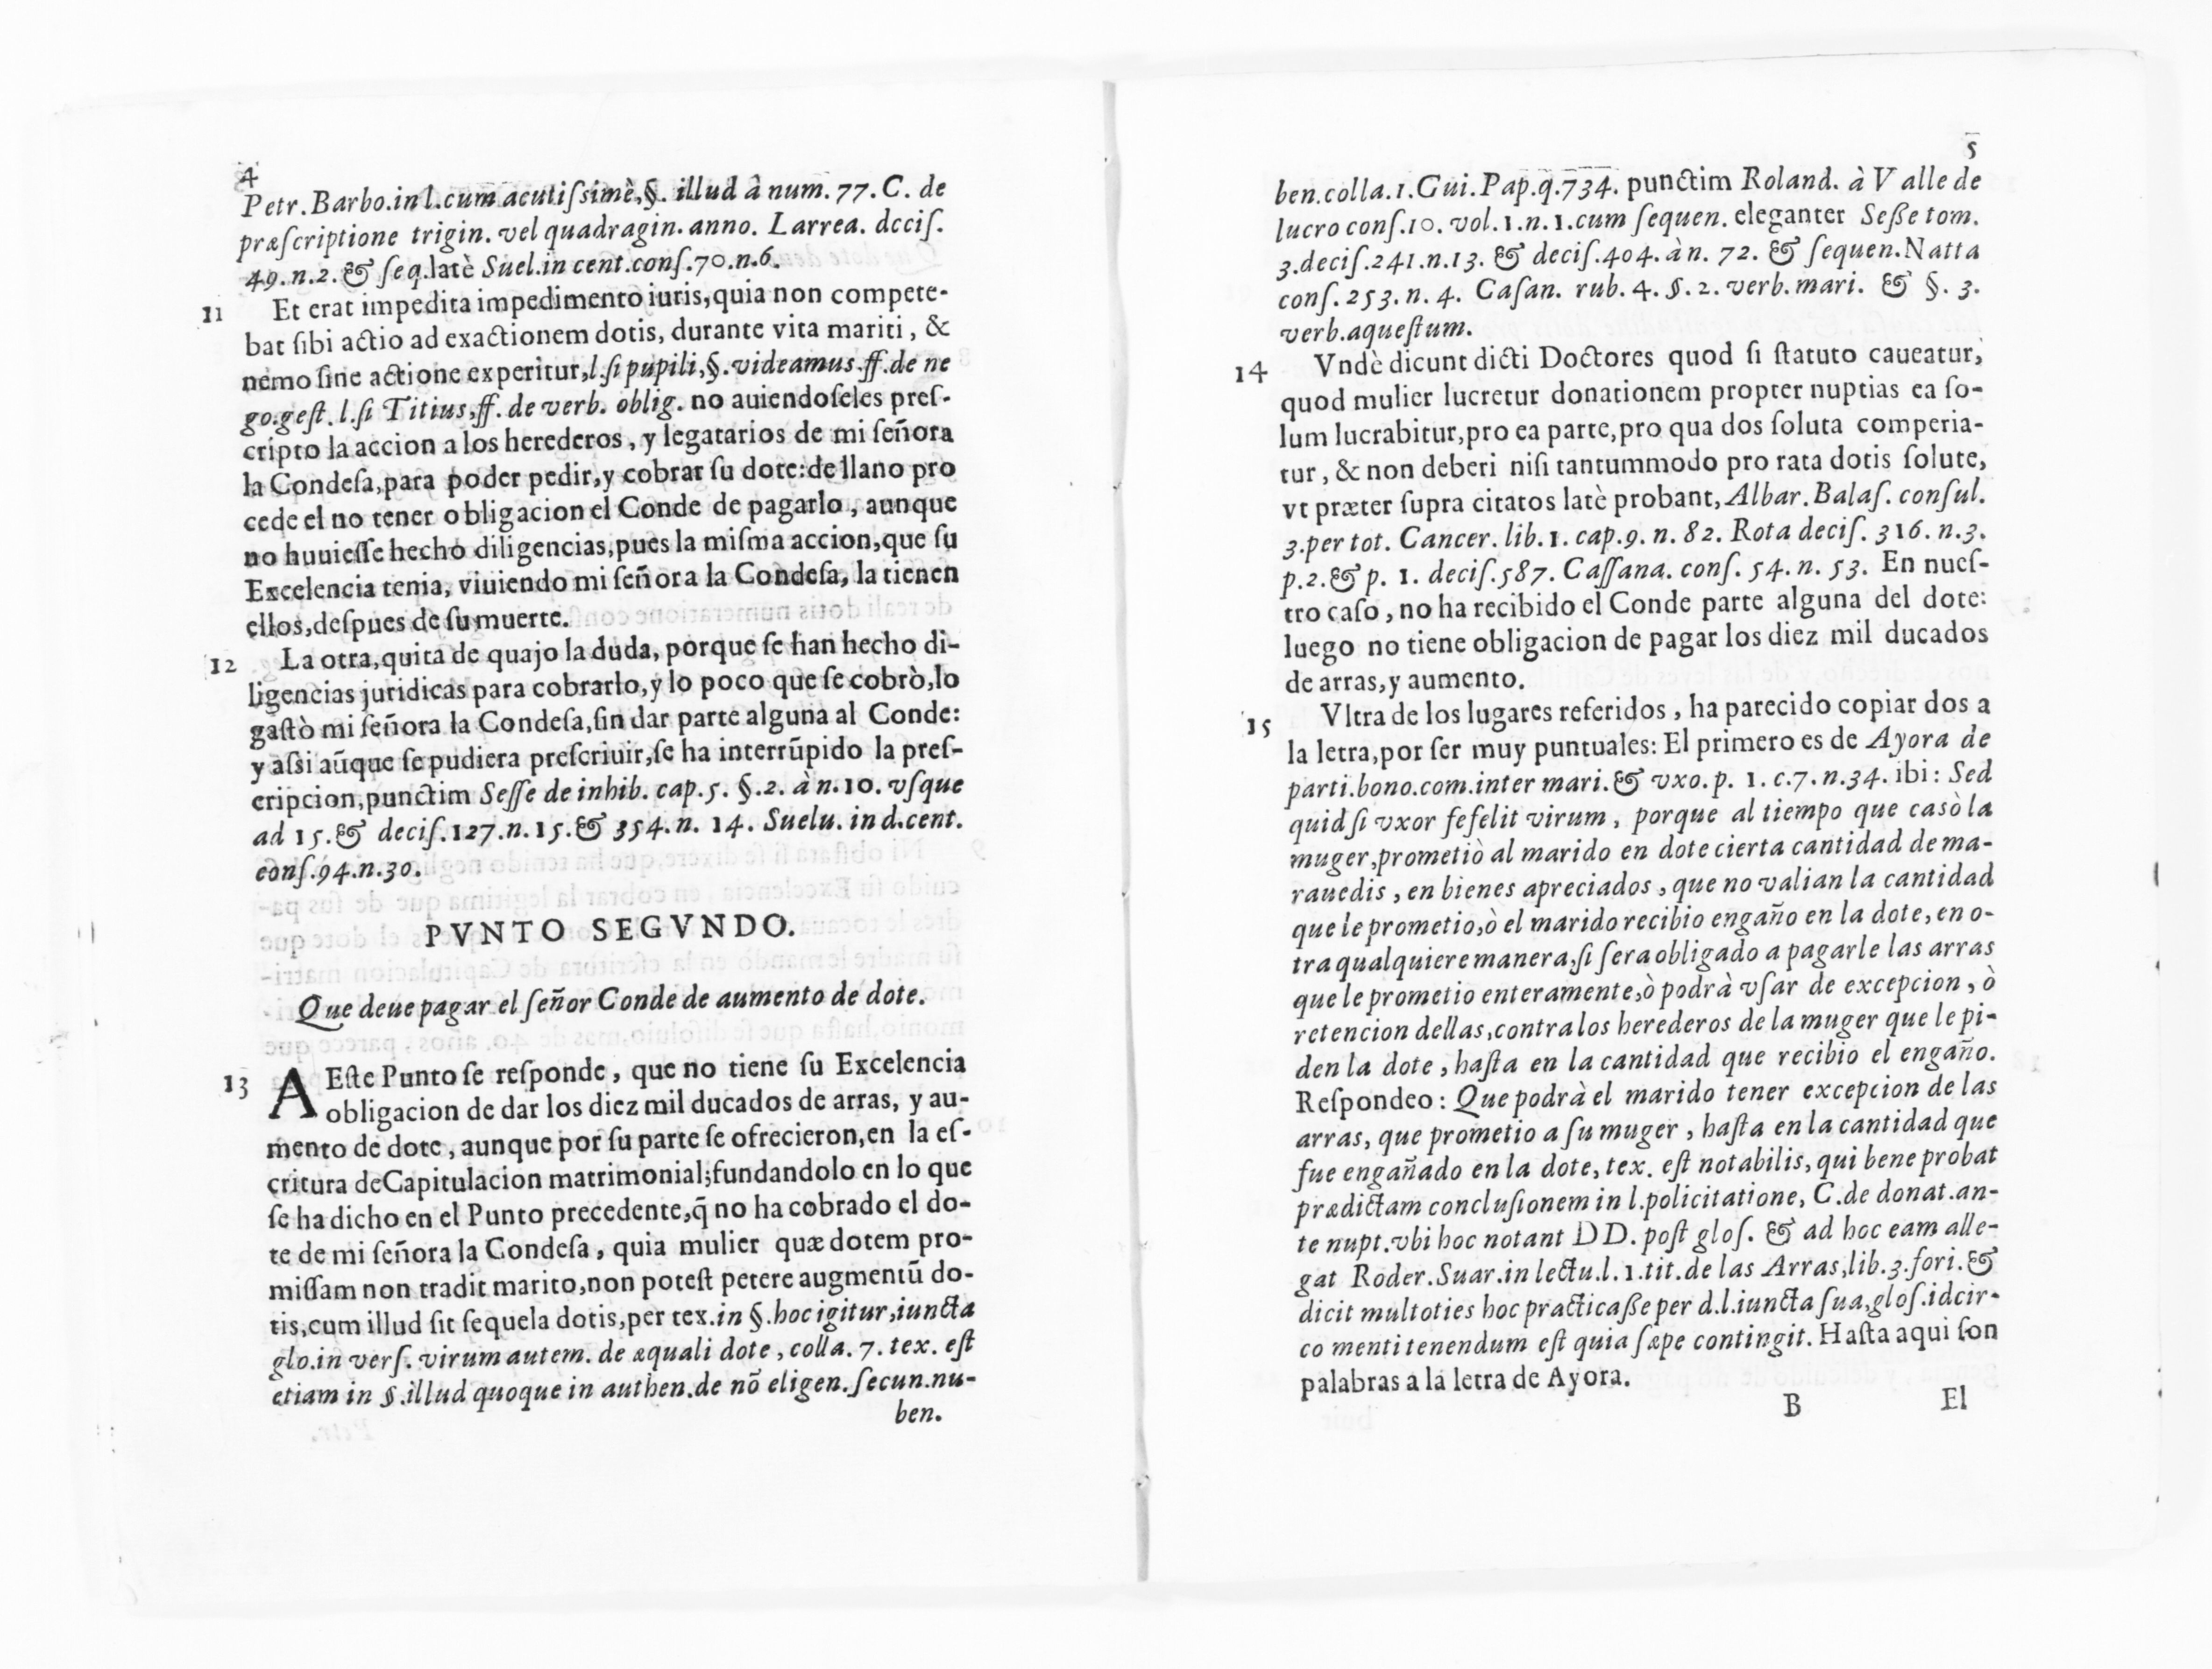 4
Petr.Barbo.in l.cum acutiſsimè,§. illud â num. 77. C. de
præſcriptione trigin. vel quadragin. anno. Larrea. deciſ.
49.n.2.& ſeq.latè Suel.in cent.conſ.70.n.6.
11 Et erat impedita impedimento iuris,quia non compete-
bat ſibi actio ad exactionem dotis, durante vita mariti, &
nemo ſine actione experitur,l.ſi pupili,§.videamus.ff.de ne
go.geſt. l.ſi Titius,ff. de verb. oblig. no auiendoſeles preſ-
cripto la accion a los herederos, y legatarios de mi ſeñora
la Condeſa,para poder pedir,y cobrar ſu dote:de llano pro
cede el no tener obligacion el Conde de pagarlo, aunque
no huuieſſe hecho diligencias,pues la miſma accion,que ſu
Excelencia tenia, viuiendo mi ſeñora la Condeſa, la tienen
ellos,deſpues de ſu muerte.
12 La otra,quita de quajo la duda, porque ſe han hecho di-
ligencias juridicas para cobrarlo,y lo poco que ſe cobrò,lo
gaſtò mi ſeñora la Condeſa,ſin dar parte alguna al Conde:
y aſsi aũque ſe pudiera preſcriuir,ſe ha interrũpido la preſ-
cripcion,punctim Seſſe de inhib. cap.5. §.2. à n.10. vſque
ad 15.& deciſ.127.n.15.& 354.n. 14. Suelu. in d.cent.
conſ.94.n.30.
PVNTO SEGVNDO.
Que deue pagar el ſeñor Conde de aumento de dote.
13 A Eſte Punto ſe reſponde, que no tiene ſu Excelencia
obligacion de dar los diez mil ducados de arras, y au-
mento de dote, aunque por ſu parte ſe ofrecieron,en la eſ-
critura de Capitulacion matrimonial;fundandolo en lo que
ſe ha dicho en el Punto precedente,q̃ no ha cobrado el do-
te de mi ſeñora la Condeſa, quia mulier quæ dotem pro-
miſſam non tradit marito,non poteſt petere augmentũ do-
tis,cum illud ſit ſequela dotis,per tex.in §.hoc igitur,iuncta
glo.in verſ. virum autem. de æquali dote, colla. 7. tex. eſt
etiam in §.illud quoque in authen.de nõ eligen.ſecun.nu-
ben.
5
ben.colla.1.Gui.Pap.q.734. punctim Roland. à Valle de
lucro conſ.10. vol.1.n.1.cum ſequen. eleganter Seſſe tom.
3.deciſ.241.n.13. & deciſ.404. à n. 72. & ſequen.Natta
conſ.253.n. 4. Caſan. rub. 4. §. 2. verb. mari. & §. 3.
verb.aqueſtum.
14 Vndè dicunt dicti Doctores quod ſi ſtatuto caueatur,
quod mulier lucretur donationem propter nuptias ea ſo-
lum lucrabitur,pro ea parte,pro qua dos ſoluta comperia-
tur, & non deberi niſi tantummodo pro rata dotis ſolute,
vt præter ſupra citatos latè probant, Albar. Balaſ. conſul.
3.per tot. Cancer. lib.1. cap.9. n. 82. Rota deciſ. 316. n.3.
p.2.& p. 1. deciſ.587. Caſſana. conſ. 54. n. 53. En nueſ-
tro caſo, no ha recibido el Conde parte alguna del dote:
luego no tiene obligacion de pagar los diez mil ducados
de arras,y aumento.
15 Vltra de los lugares referidos, ha parecido copiar dos a
la letra,por ſer muy puntuales: El primero es de Ayora de
parti.bono.com.inter mari.& vxo.p. 1. c.7.n.34. ibi: Sed
quid ſi vxor fefelit virum, porque al tiempo que casò la
muger,prometiò al marido en dote cierta cantidad de ma-
rauedis, en bienes apreciados, que no valian la cantidad
que le prometio,ò el marido recibio engaño en la dote, en o-
tra qualquiere manera,ſi ſera obligado a pagarle las arras
que le prometio enteramente,ò podrà vſar de excepcion, ò
retencion dellas,contra los herederos de la muger que le pi-
den la dote, haſta en la cantidad que recibio el engaño.
Reſpondeo: Que podrà el marido tener excepcion de las
arras, que prometio a ſu muger, haſta en la cantidad que
fue engañado en la dote, tex. eſt notabilis, qui bene probat
prædictam concluſionem in l.policitatione, C.de donat.an-
te nupt.vbi hoc notant DD. poſt gloſ. & ad hoc eam alle-
gat Roder.Suar.in lectu.l.1.tit.de las Arras,lib.3.fori.&
dicit multoties hoc practicaſſe per d.l.iuncta ſua,gloſ.idcir-
co menti tenendum eſt quia ſæpe contingit. Haſta aqui ſon
palabras a la letra de Ayora.
B El